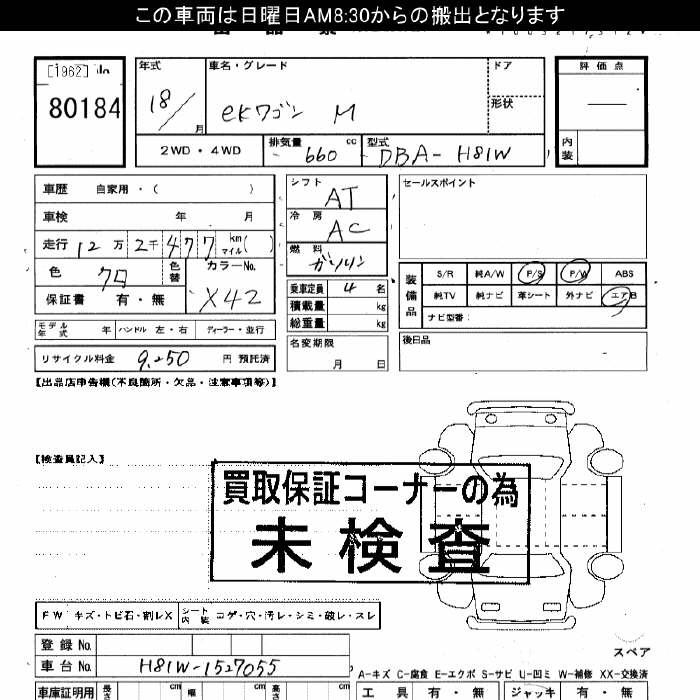 この車両は日曜日AM8:30からの搬出となります
[1962]
80184
年式
車名・グレード
ドア
評価点
18/
月
ekワゴン M
形状
2WD・4WD
排気量 660 cc
型式 DBA-H81W
内装
車歴 自家用・( )
シフト AT
セールスポイント
車検 年 月
冷房 AC
走行 12万2千477 km マイル( )
燃料 ガソリン
色 クロ
色替
カラーNo. X42
乗車定員 4 名
装備品
S/R 純A/W P/S P/W ABS
保証書 有・無
積載量 kg
純TV 純ナビ 革シート 外ナビ エアB
総重量 kg
ナビ型番:
モデル年式 年 ハンドル 左・右 ディーラー・並行
名変期限 月 日
後日品
リサイクル料金 9,250 円 預託済
【出品店申告欄(不良箇所・欠品・注意事項等)】
【検査員記入】
買取保証コーナーの為
未検査
FW キズ・トビ石・割レX シート内装 コゲ・穴・汚レ・シミ・破レ・スレ
登録No.
スペア
車台No. H81W-1527055
A-キズ C-腐食 E-エクボ S-サビ U-凹ミ W-補修 XX-交換済
車庫証明用 長さ cm 幅 cm 高さ cm
工具 有・無 ジャッキ 有・無